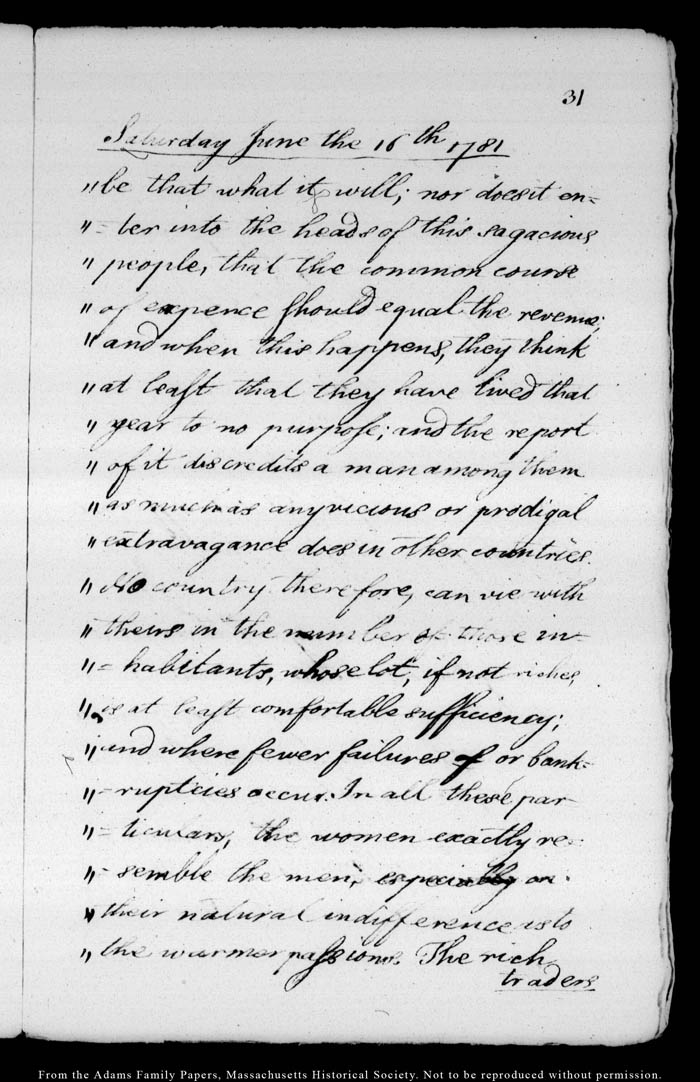 31
Saturday June the 16th 1781
"be that what it will; nor does it en=
"= ter into the heads of this sagacious
" people, that the common course
" of expence should equal the revenue;
" and when this happens, they think
" at least that they have lived that
" year to no purpose; and the report
" of it discredits a man among them
" as much as any vicious or prodigal
" extravagance does in other countries.
" No country therefore, can vie with
" theirs in the number of those in=
"= habitants, whose lot, if not riches,
" is at least comfortable sufficiency;
" and where fewer failures of or bank=
"= rupticies occur. In all these par=
"= ticulars, the women exactly re=
"= semble the men, especially on
" their natural indifference is to
" the warmer passions. The rich
traders
From the Adams Family Papers, Massachusetts Historical Society. Not to be reproduced without permission.